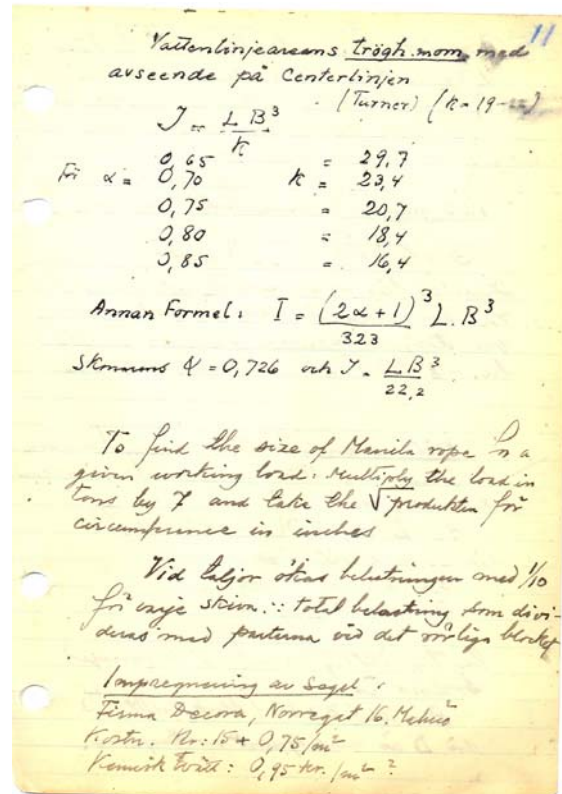 11
Vattenlinjeareans trögh.mom. med
avseende på Centerlinjen
(Turner) (k = 19-
J = L B³ / k
0,65 = 29,7
För α = 0,70 k = 23,4
0,75 = 20,7
0,80 = 18,4
0,85 = 16,4
Annan Formel: I = (2α+1)³ L. B³ / 323
Skonarens α = 0,726 och J = LB³ / 22,2
To find the size of Manila rope for a
given working load: Multiply the load in
tons by 7 and take the √ produkten för
circumference in inches
Vid taljor ökas belastningen med 1/10
för varje skiva ∴ total belastning som divi-
deras med parterna vid det rörliga blocket
Impregnering av Segel:
Firma Decora, Norregat 16. Malmö
Kostn. Kr: 15 + 0,75/m²
Kemisk tvätt: 0,95 kr. /m² ?